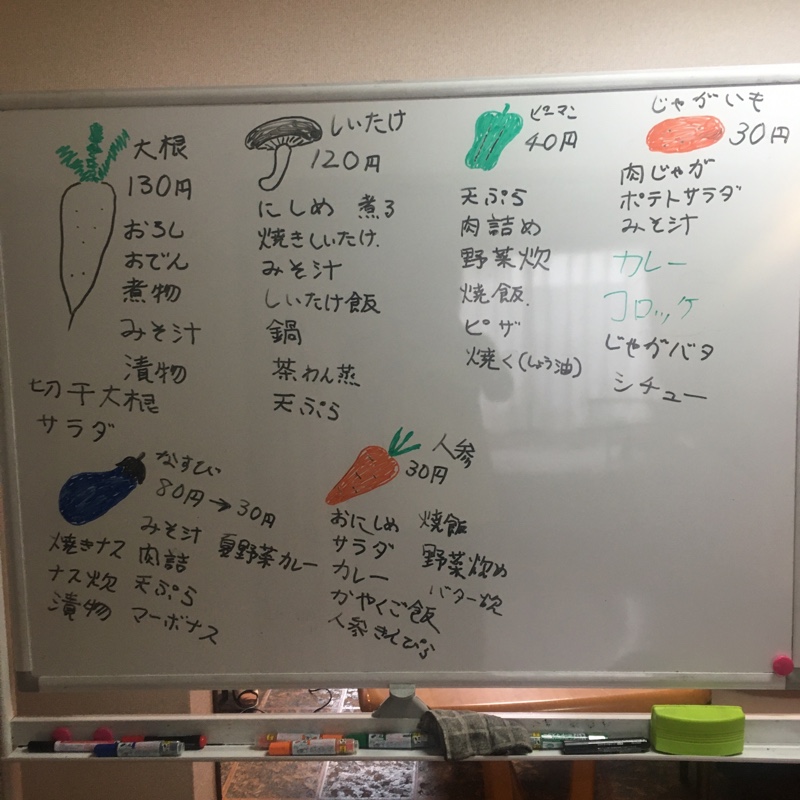 大根
130円
おろし
おでん
煮物
みそ汁
漬物
切干大根
サラダ
しいたけ
120円
にしめ 煮る
焼きしいたけ.
みそ汁
しいたけ飯
鍋
茶わん蒸
天ぷら
ピーマン
40円
天ぷら
肉詰め
野菜炊
焼飯.
ピザ
焼く(しょう油)
じゃがいも
30円
肉じゃが
ポテトサラダ
みそ汁
カレー
コロッケ
じゃがバタ
シチュー
なすび
80円→30円
みそ汁
焼きナス 肉詰 夏野菜カレー
ナス炊 天ぷら
漬物 マーボナス
人参
30円
おにしめ 焼飯
サラダ 野菜炊め
カレー バター炊
かやくご飯
人参きんぴら